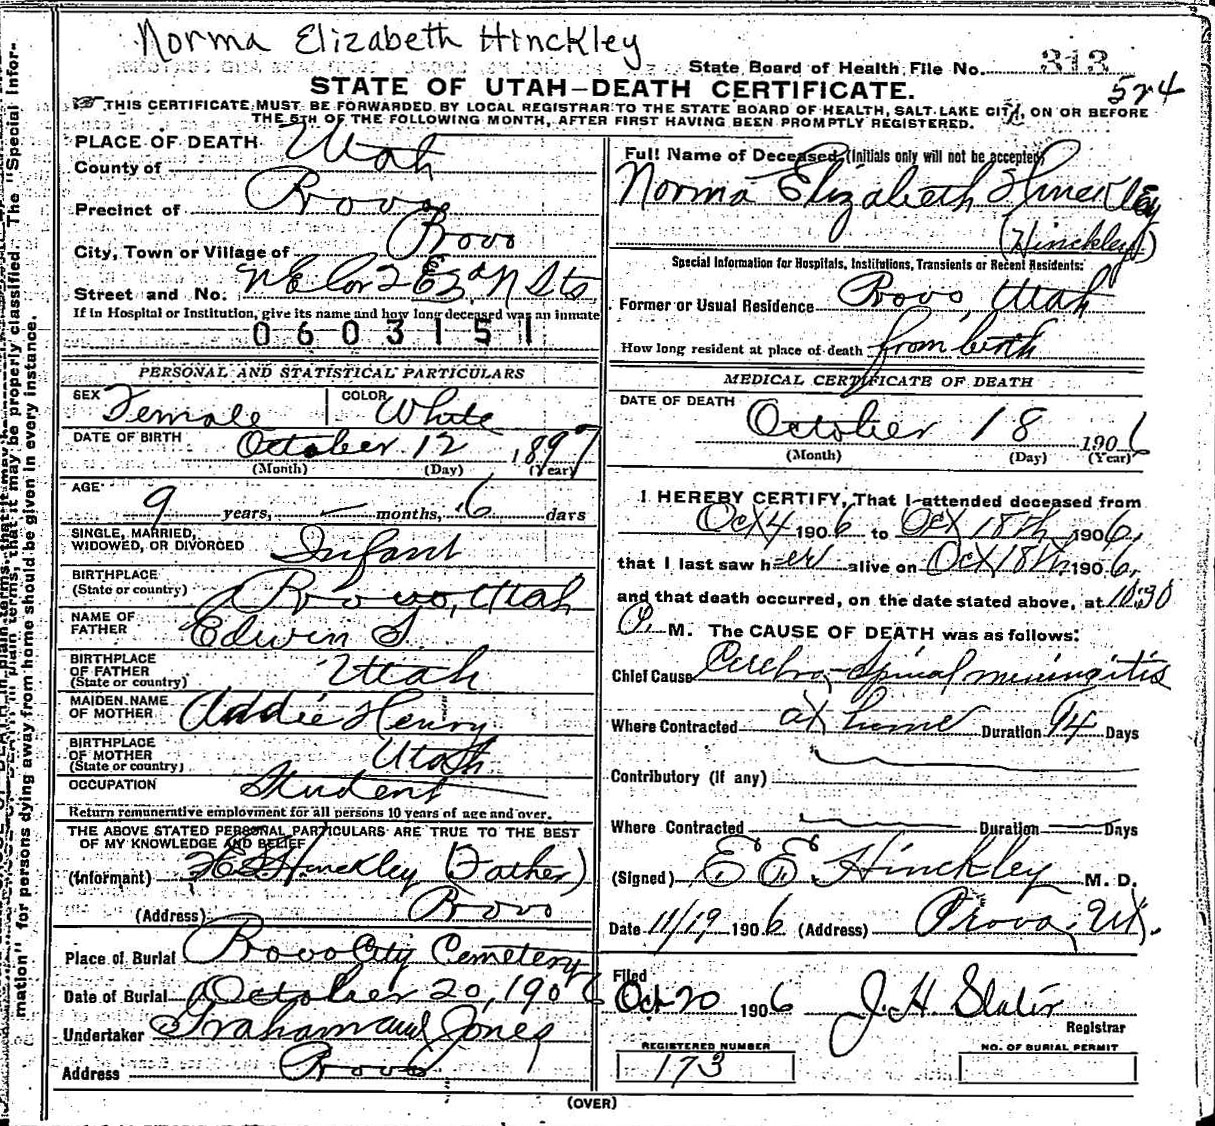 Norma Elizabeth Hinckley
State Board of Health File No. 313
574
STATE OF UTAH—DEATH CERTIFICATE.
THIS CERTIFICATE MUST BE FORWARDED BY LOCAL REGISTRAR TO THE STATE BOARD OF HEALTH, SALT LAKE CITY, ON OR BEFORE
THE 5TH OF THE FOLLOWING MONTH, AFTER FIRST HAVING BEEN PROMPTLY REGISTERED.
PLACE OF DEATH
County of Utah
Precinct of Provo
City, Town or Village of Provo
Street and No. N E Cor 2 E & 3 N Sts
If in Hospital or Institution, give its name and how long deceased was an inmate
0603151
PERSONAL AND STATISTICAL PARTICULARS
SEX Female COLOR White
DATE OF BIRTH October 12 1897
(Month) (Day) (Year)
AGE 9 years, — months, 6 days
SINGLE, MARRIED,
WIDOWED, OR DIVORCED Infant
BIRTHPLACE
(State or country) Provo, Utah
NAME OF
FATHER Edwin S.
BIRTHPLACE
OF FATHER
(State or country) Utah
MAIDEN NAME
OF MOTHER Addie Henry
BIRTHPLACE
OF MOTHER
(State or country) Utah
OCCUPATION Student
Return remunerative employment for all persons 10 years of age and over.
THE ABOVE STATED PERSONAL PARTICULARS ARE TRUE TO THE BEST
OF MY KNOWLEDGE AND BELIEF
(Informant) E S Hinckley (Father)
(Address) Provo
Place of Burial Provo City Cemetery
Date of Burial October 20, 1906
Undertaker Graham and Jones
Address Provo
Full Name of Deceased, (Initials only will not be accepted)
Norma Elizabeth Hinckley
(Hinckley)
Special Information for Hospitals, Institutions, Transients or Recent Residents:
Former or Usual Residence Provo, Utah
How long resident at place of death from birth
MEDICAL CERTIFICATE OF DEATH
DATE OF DEATH
October 18 1906
(Month) (Day) (Year)
I HEREBY CERTIFY, That I attended deceased from
Oct 4 1906 to Oct 18th 1906,
that I last saw her alive on Oct 18th 1906,
and that death occurred, on the date stated above, at 10:30
P. M. The CAUSE OF DEATH was as follows:
Chief Cause Cerebro-Spinal meningitis
Where Contracted at home Duration 14 Days
Contributory (If any)
Where Contracted Duration Days
(Signed) E E Hinckley M. D.
Date 11/19 1906 (Address) Provo, Ut.
Filed
Oct 20 1906 J. H. Slater
Registrar
REGISTERED NUMBER
173
NO. OF BURIAL PERMIT
(OVER)
mation" for persons dying away from home should be given in every instance.